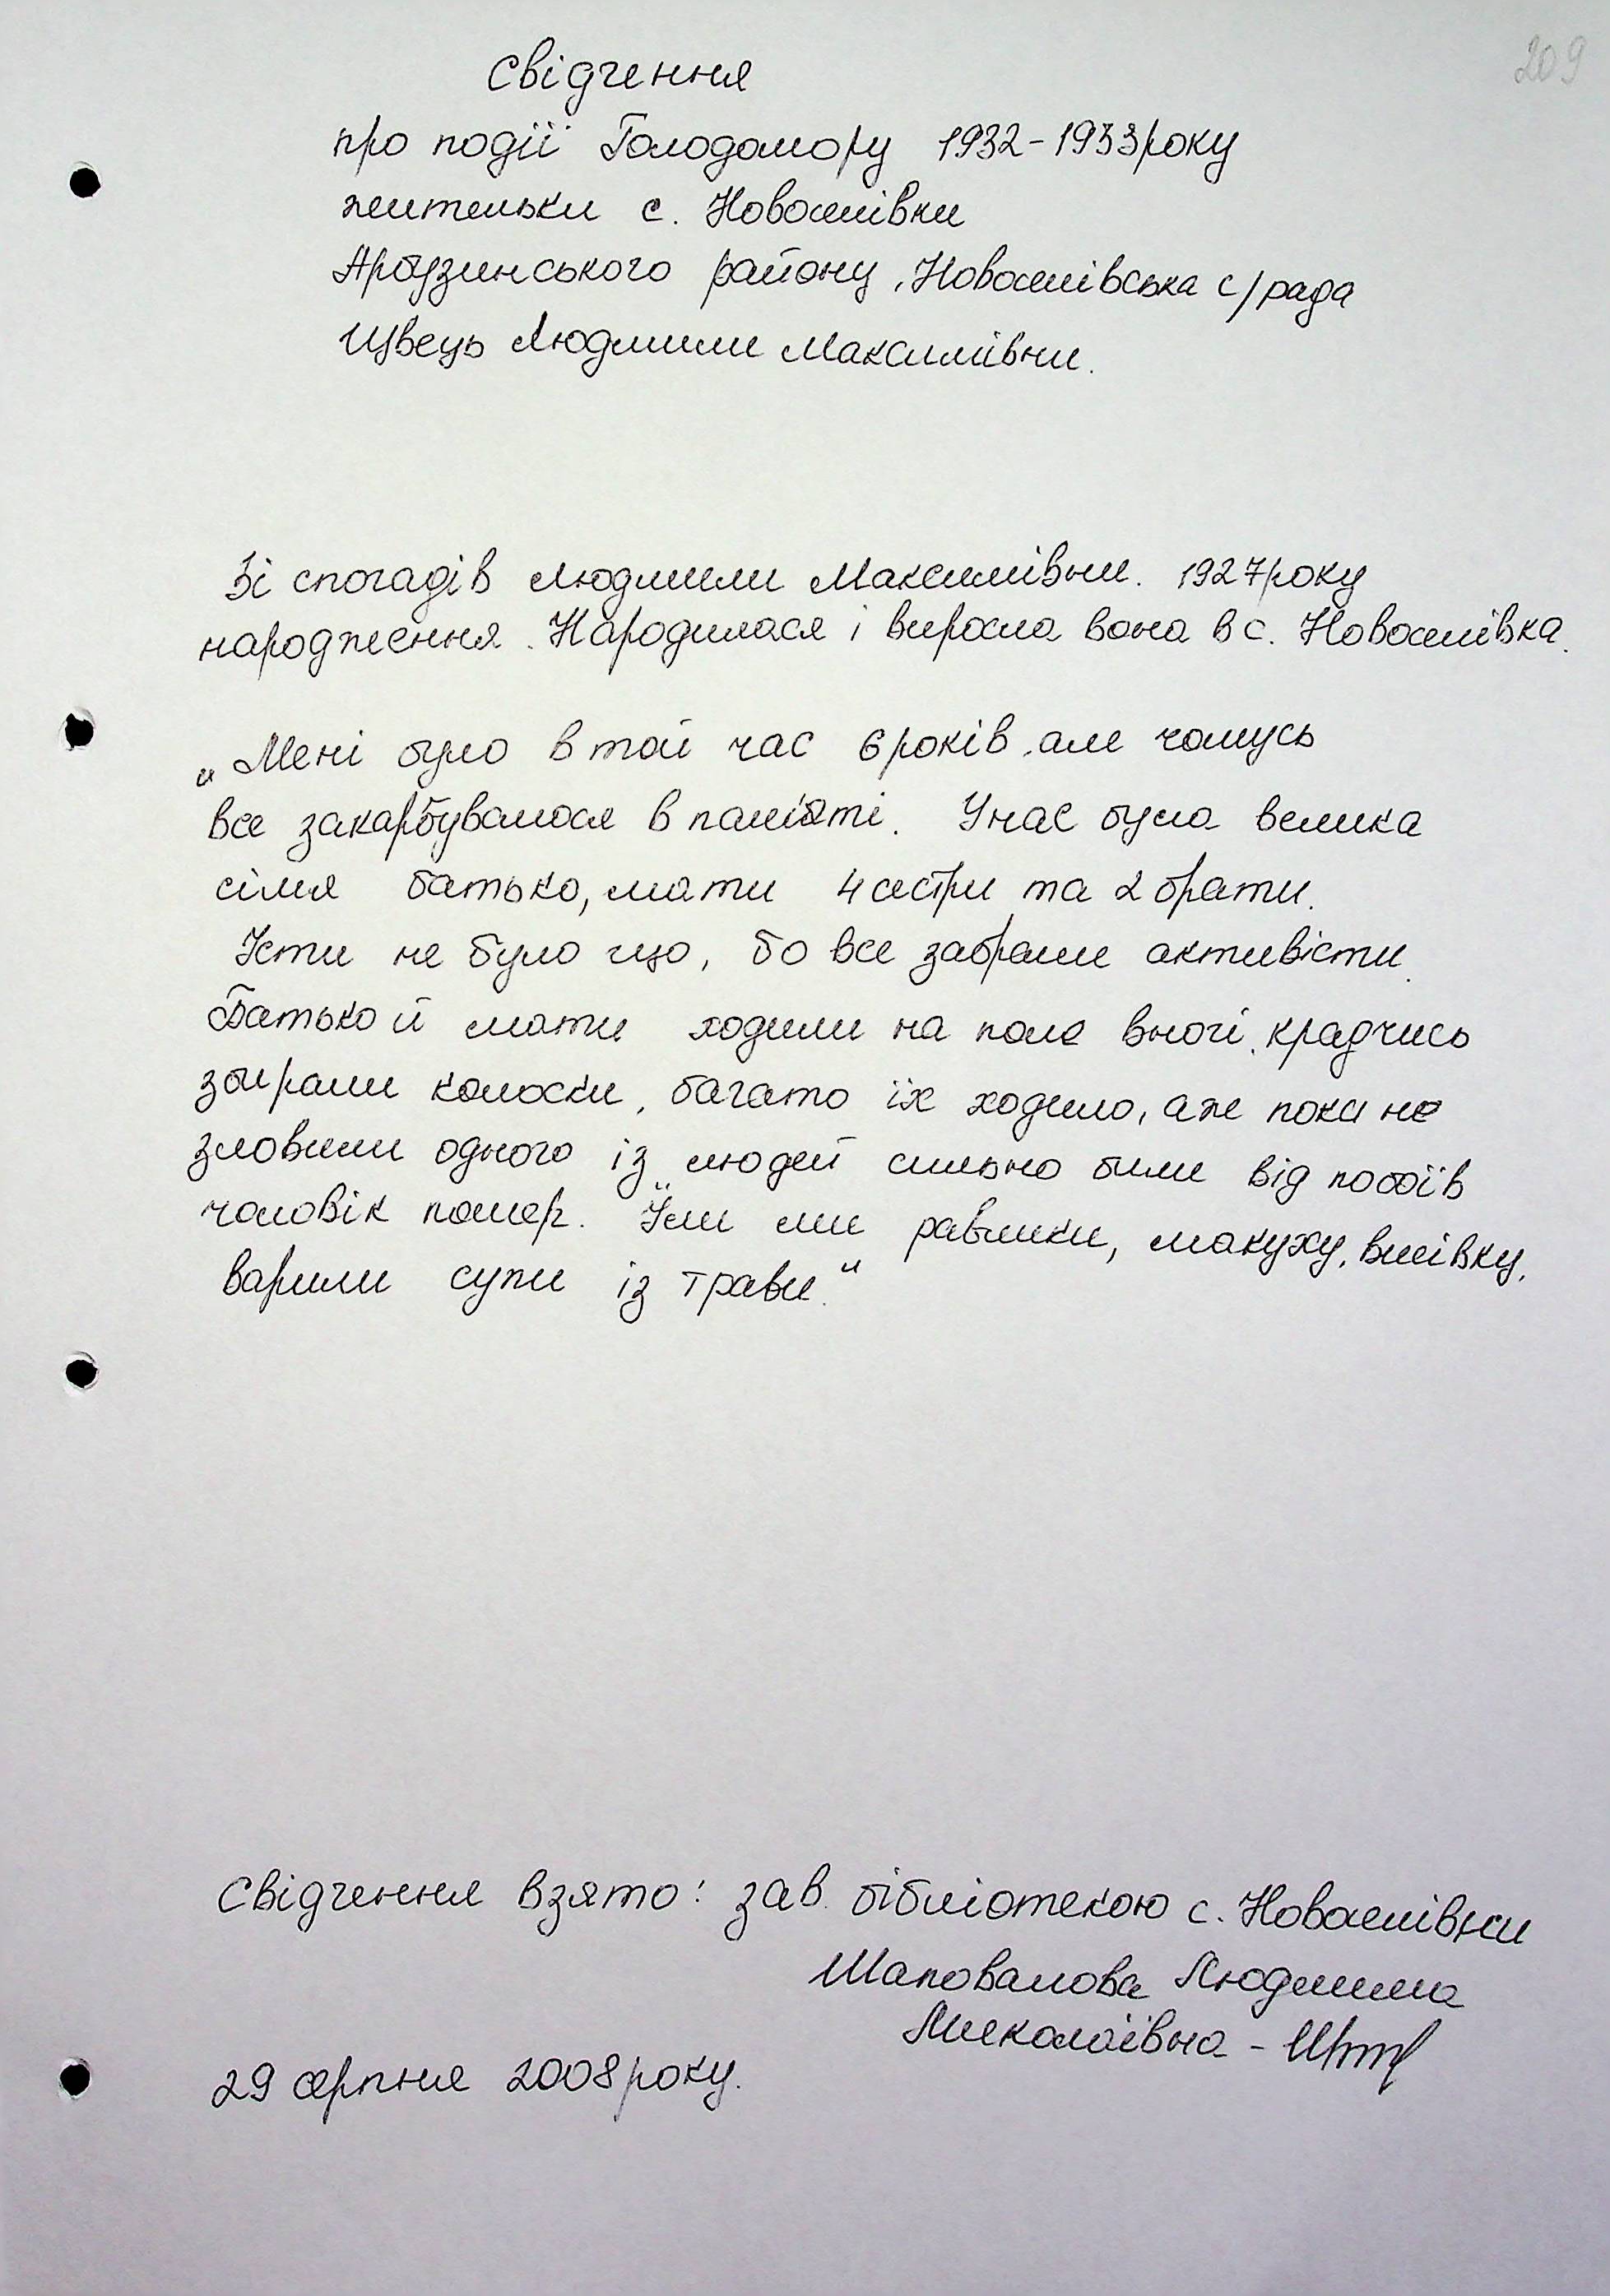 209
Свідчення
про події Голодомору 1932-1933року
жительки с. Новоселівки
Арбузинського району, Новоселівська с/рада
Швець Людмили Максимівни.
Зі спогадів Людмили Максимівни. 1927року
народження. Народилася і виросла вона в с. Новоселівка.
„Мені було в той час 6років, але чомусь
все закарбувалося в пам'яті. Унас була велика
сімя батько, мати 4 сестри та 2 брати.
Їсти не було що, бо все забрали активісти.
Батько й мати ходили на поле вночі, крадучись
збирали колоски, багато їх ходило, аж поки не
зловили одного із людей сильно били від побоїв
чоловік помер. Їли ми равлики, макуху, висівку,
варили супи із трави."
Свідчення взято: зав. бібліотекою с. Новоселівки
Шаповалова Людмила
Миколаївна -
29 серпня 2008року.